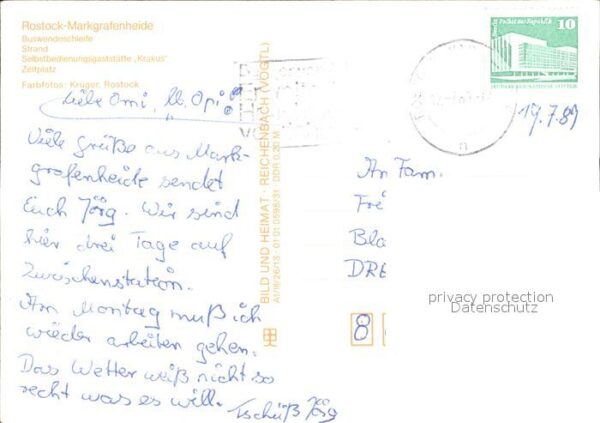 Rostock-Markgrafenheide
Buswendeschleife
Strand
Selbstbedienungsgaststätte „Krakus"
Zeltplatz
Farbfotos: Krüger, Rostock
Liebe Omi, u. Opi!
Viele Grüße aus Mark-
grafenheide sendet
Euch Jörg. Wir sind
hier drei Tage auf
Zwischenstation.
Am Montag muß ich
wieder arbeiten gehen.
Das Wetter weiß nicht so
recht was es will. Tschüß Jörg
BILD UND HEIMAT · REICHENBACH (VOGTL)
A1/III/26/13 01 01 0595/31 DDR 0,20 M
10
19.7.89
An Fam.
Fré
Bla
DRE
8
privacy protection
Datenschutz